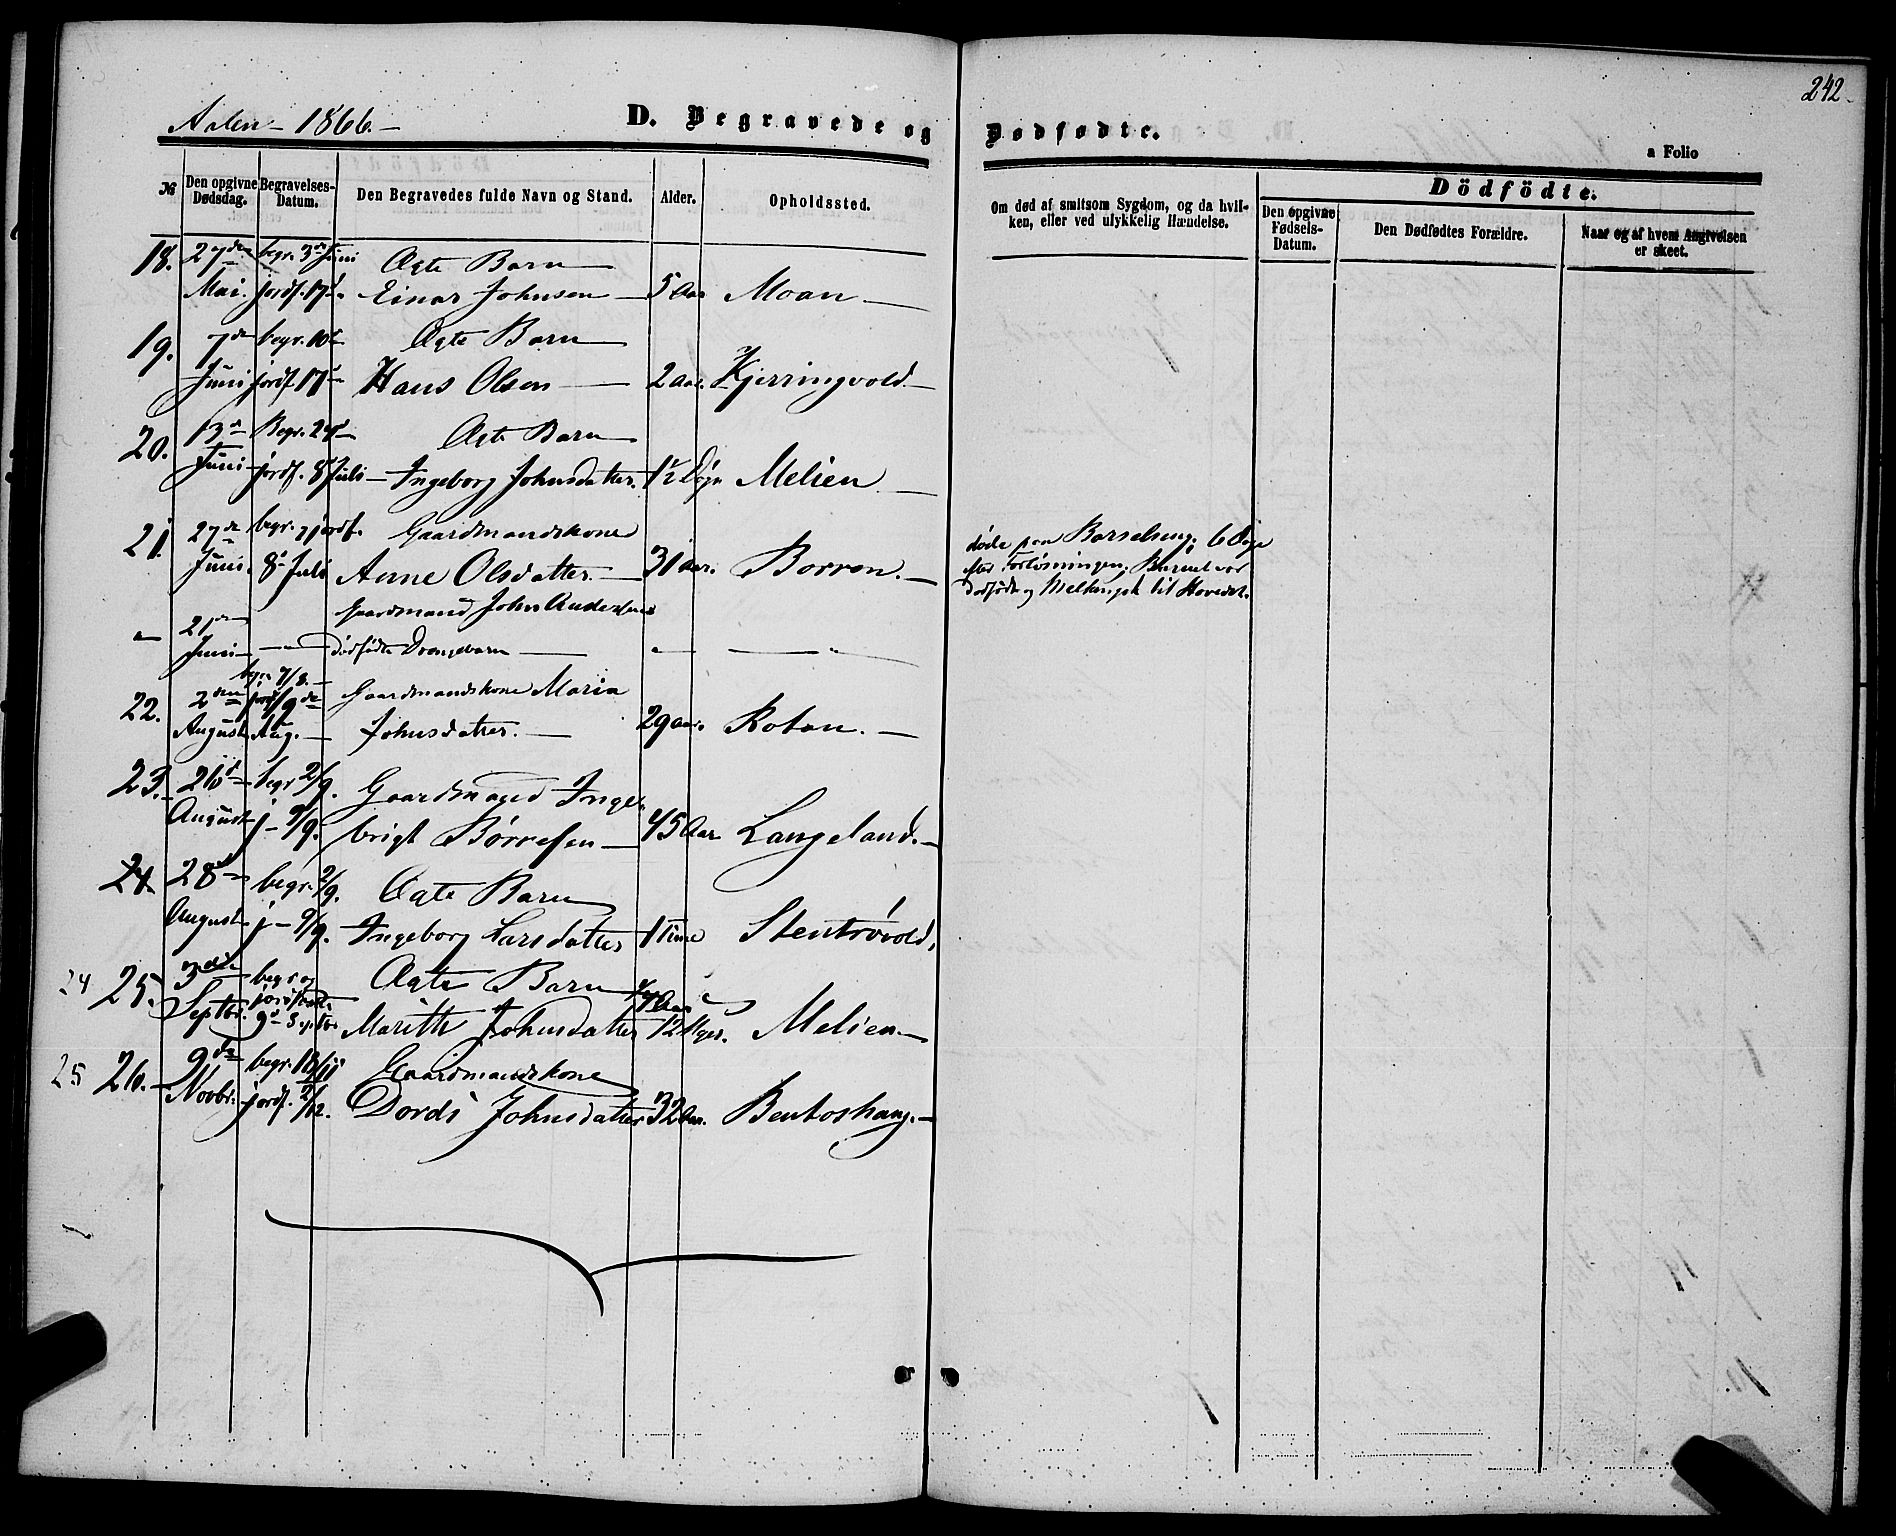 242.
Aalen – 1866. –
D. Begravede og Dødfødte.
a Folio
№
Den opgivne Dødsdag.
Begravelses-Datum.
Den Begravedes fulde Navn og Stand.
Alder.
Opholdssted.
Om død af smitsom Sygdom, og da hvilken, eller ved ulykkelig Hændelse.
Dödfödte.
Den opgivne Fødsels-Datum.
Den Dødfødtes Forældre.
Naar og af hvem Angivelsen er skeet.
18. 27de begr. 3de Juni Ægte Barn
Mai. jordf. 17d. Einar Johnsen 5 Aar Moan
19. 7de begr. 10d Ægte Barn
Juni jordf. 17d Hans Olsen 2 aar. Kjerringvold
20. 13d Begr. 24d Ægte Barn
Juni jordf. 8d Juli Ingeborg Johnsdatter. 1½ Døgn Melien
21. 27de begr. & jordf. Gaardmandskone
Juni. 8d Juli Anne Olsdatter. 31 aar. Borron.
døde paa Barselseng. 6 Dage
efter Forløsningen. Barnet var
Dødfødt og
til Hovedet.
– 21de Gaardmand John Andersens
Juni – dødfødte Drengebarn –
22. 2den begr. 7/8. Gaardmandskone Maria
August jordf. 9de Aug. Johnsdatter. 29 aar. Roten.
23. 26d begr 2/9. Gaardmand Inge-
August j – 9/9. brigt Børresen 45 Aar Langeland.
24. 28d begr. 2/9. Ægte Barn
August j – 9/9. Ingeborg Larsdatter 1 Time Stentrøvold,
24 25. 3die begr og Ægte Barn
Septbr. jordfæstet 9d Septbr. Marith Johnsdatter 12 Uger. Melien
25 26. 9de begr. 18/11 Gaardmandskone
Novbr. jordf. 2/12. Dordi Johnsdatter 32 Aar. Bentoshaug.